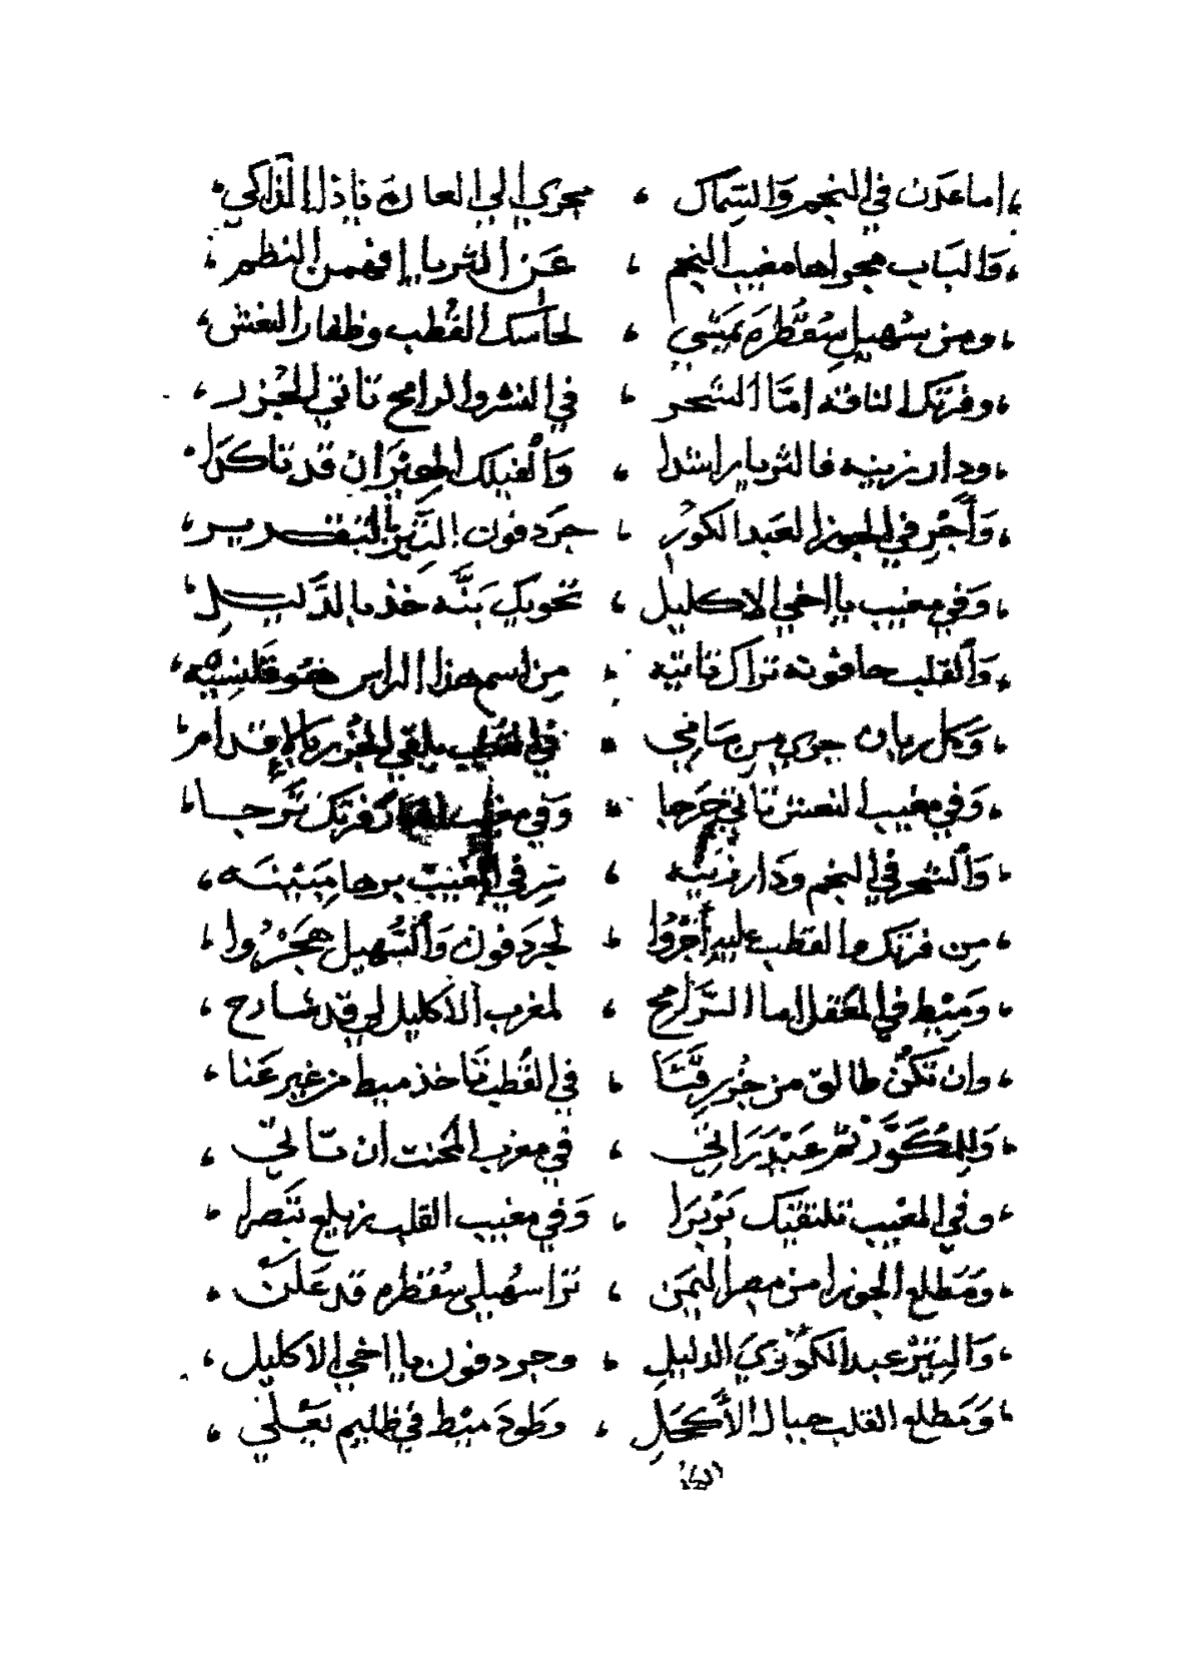 اما عدن في النجم والسماك ، مجرى الى العارة ياذا الذاكي
والباب مجراها مغيب النجم ، عن الثريا إفهمن النظم
ومن سهيل سقطره تمشي ، لحاسك القطب وظفار النعش
وفرتك الناقه امّا الشحر ، في النسر والرامح تاتي الجزر
ودار زينه فالثريا راشدا ، والفيلك الجوزان قد تاكدا
وأجر في الجوزا لعبد الكوري ، جردفون التير بالتقرير
وفي مغيب يا اخي الاكليل ، تحويك بنّه خذ بالدليل
والقلب حافونه تراك تاتيه ، من اسم هذا الراس هو قلنسيه
وكل ربان جرى من صافي ، في القطب يلقي الجزر
وفي مغيب النعش تاتي جرحا ، وفي مغيب فرتك
والشحر في النجم ودار زينه ، سر في المغيب برها مبينه
من فرتك والقطب عليه أجروا ، لجردفون والسهيل هجروا
وميط في العقل اما الرامح ، لمغرب الاكليل لي قد شارح
وان تكن طالق من جزر ، في القطب تاخذ ميط من غير عنا
وللكور ثم عبد راني ، في مغرب المحنث ان تاتي
وفي المغيب تلتقيك بربرا ، وفي مغيب القلب زيلع تنصرا
ومطلع الجوزا من مصر اليمن ، ترا سهيلي سقطره قد علن
والتير عبد الكوري الدليل ، وجردفون يا اخي الاكليل
ومطلع القلب جبال الأكحل ، وطود ميط في ظليم يعلي